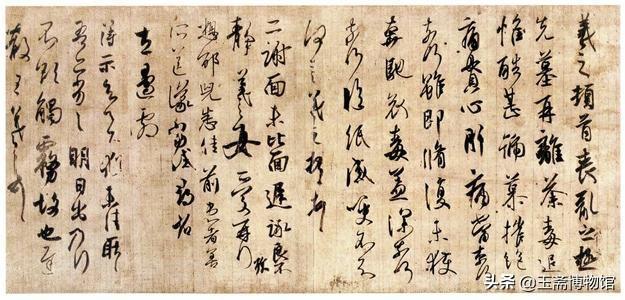 羲之頓首喪亂之極
先墓再離荼毒追
惟酷甚號慕摧絕
痛貫心肝痛當奈何
奈何雖即脩復未獲
奔馳哀毒益深奈何
奈何臨紙感哽不知
何言羲之頓首頓首
二謝面未比面遲詠良不
靜羲之女愛再拜
想邵兒悉佳前患者善
所送議當試尋省
左邊劇
得示知足下猶未佳耿耿
吾亦劣劣明日出乃行
不欲觸霧故也遲
散王羲之頓首
头条 @玉斋博物馆